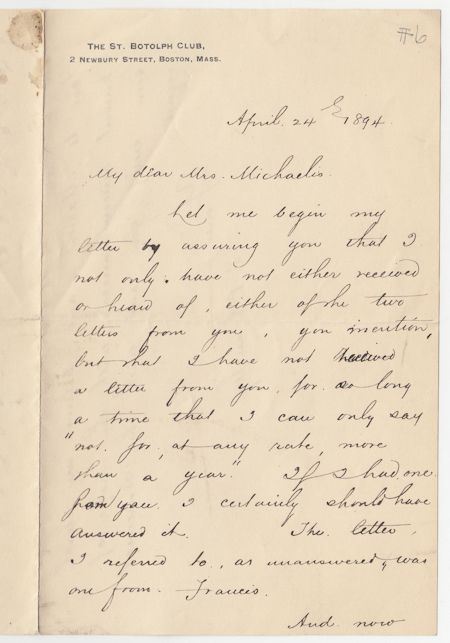 #6
THE ST. BOTOLPH CLUB,
2 NEWBURY STREET, BOSTON, MASS.
April. 24th 1894.
My dear Mrs. Michaelis.
Let me begin my
letter by assuring you that I
not only. have not either received
or heard of, either of the two
letters from you, you mention,
but that I have not received
a letter from you. for. so long
a time that I can only say
"not. for, at any rate, more
than a year." If I had one
from you I certainly should have
answered it. The. letter,
I referred to, as unanswered, was
one from. Francis.
And. now